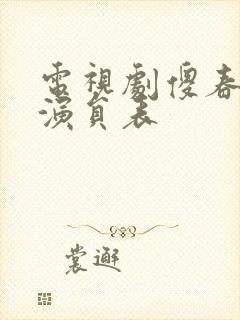 電視劇傻春
演員表
裳邂